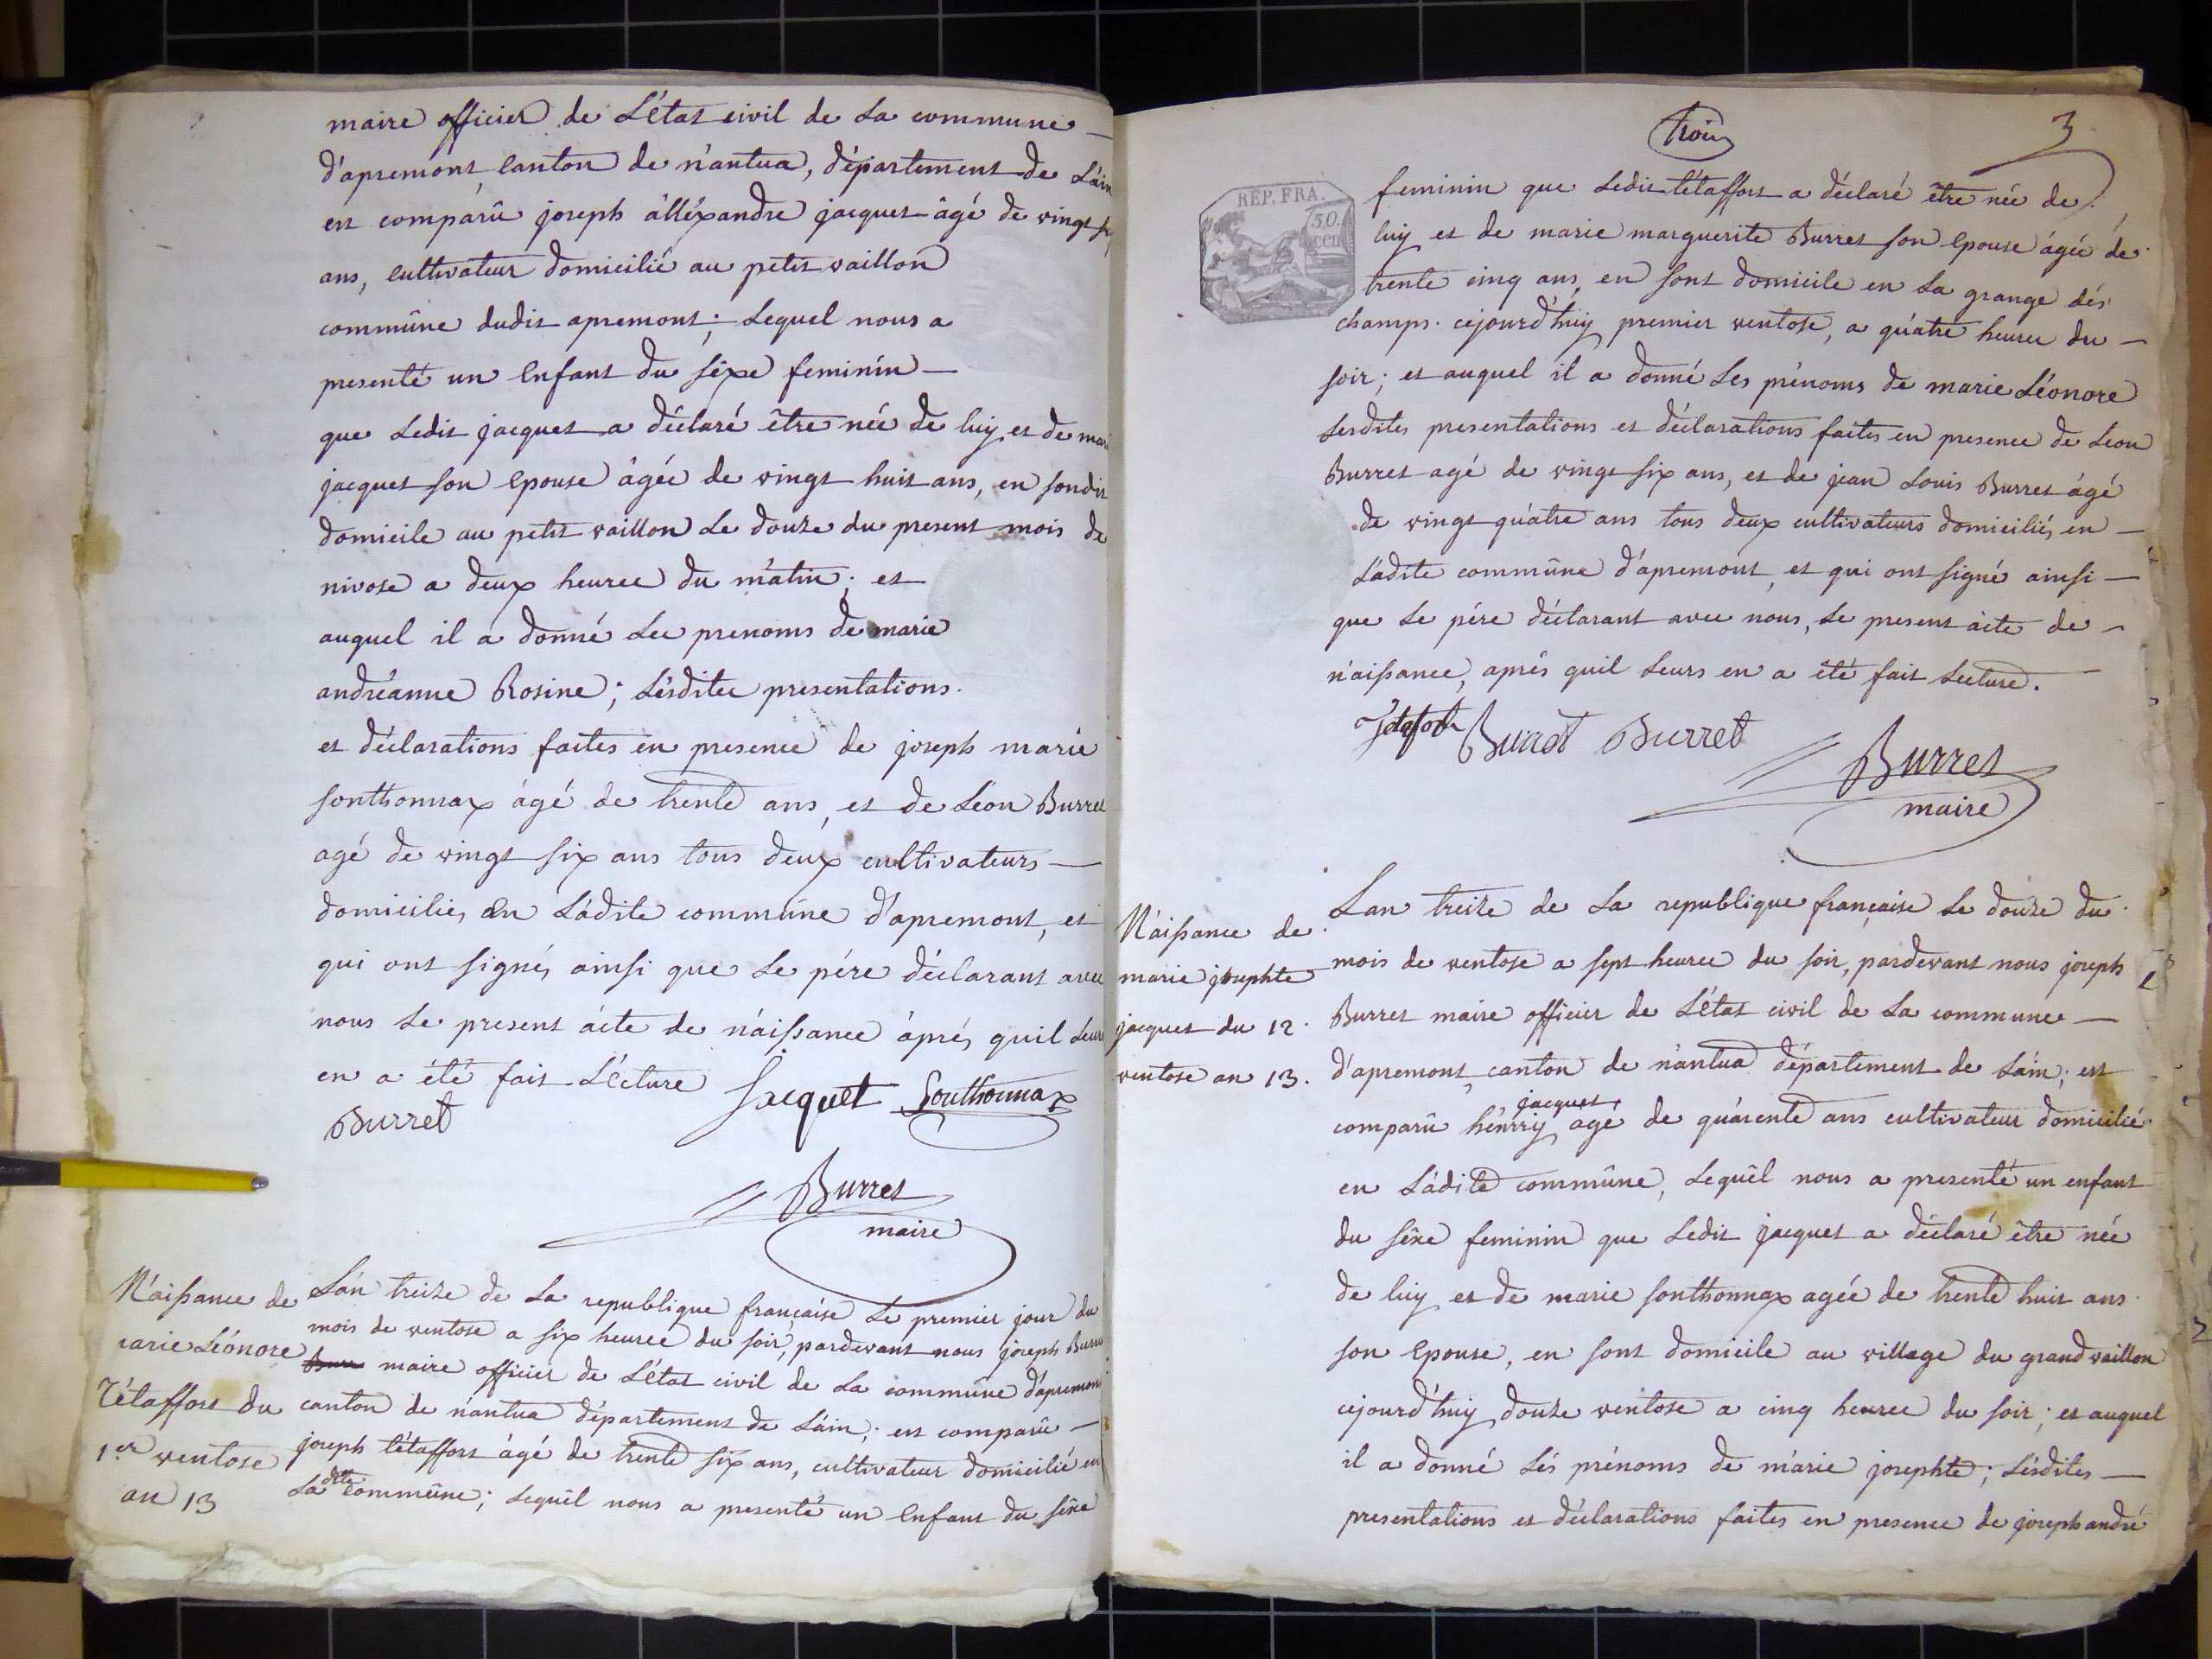 maire officier de L'état civil de La commune
d'apremont, canton de nantua, département de L'ain
est comparû joseph âlléxandre jacquet âgé de vingt
ans, cultivateur domicilié au petit vaillon
commûne dudit apremont; Lequel nous a
presenté un Enfant du séxe feminin
que Ledit jacquet a déclaré être née de luy, et de
jacquet son Epouse âgée de vingt huit ans, en sondit
domicile au petit vaillon Le douze du present mois de
nivose a deux heures du mátin; et
auquel il a donné Les prenoms de marie
andréanne Rosine; Lésdites presentations
et déclarations faites en presence de joseph marie
sonthonnax ágé de trente ans, et de Léon Burret
agé de vingt six ans tous deux cultivateurs
domiciliés en Ládite commûne d'apremont, et
qui ont signés ainsi que Le pére déclarant avec
nous Le present ácte de náissance áprés quil Leurs
en a été fait Lécture Jacquet Sonthonnax
Burret
Burret
maire
Náissance de
marie Léonore
Tétaffort du
1er ventose
an 13
Lán treize de La republique française Le premier jour du
mois de ventose a six heures du soir, pardevant nous joseph Burret
maire officier de L'état civil de La commûne d'apremont
canton de nantua département de Láin; est comparû
joseph tétaffort ágé de trente six ans, cultivateur domicilié en
Ladite commûne; Lequêl nous a presenté un Enfant du séxe
trois
3
REP. FRA.
50.
cen
feminin que Ledit tétaffort a déclaré être née de
luy et de marie marguerite Burret son Epouse ágée de
trente cinq ans, en sont domicile en La grange dés
champs. cejourd'huy premier ventose, a quátre heures du
soir; et auquel il a donné Les prénoms de marie Léonore
Lesdites presentations et déclarations faites en presence de Leon
Burret agé de vingt six ans, et de jean Louis Burret ágé
de vingt quátre ans tous deux cultivateurs domiciliés en
Ládite commûne d'apremont, et qui ont signé ainsi
que Le pére déclarant avec nous, Le present ácte de
náissance, aprés quil Leurs en a été fait Lecture.
Burret Burret
Burret
maire
Náissance de
marie josephte
jacquet du 12
ventose an 13.
Lan treize de La republique française Le douze du
mois de ventose a sept heures du soir, pardevant nous joseph
Burret maire officier de L'état civil de La commune
d'apremont, canton de nántua département de Láin; est
jacquet
comparû hénrry, agé de quárente ans cultivateur domicilié
en Ládite commûne, Lequêl nous a presenté un enfant
du séxe feminin que Ledit jacquet a déclaré être née
de luy et de marie sonthonnax agée de trente huit ans
son Epouse, en sont domicile au village du grand vaillon
cejourd'huy douze ventose a cinq heures du soir; et auquel
il a donné Lés prénoms de márie josephte; Lésdites
presentations et déclarations faites en presence de joseph andré